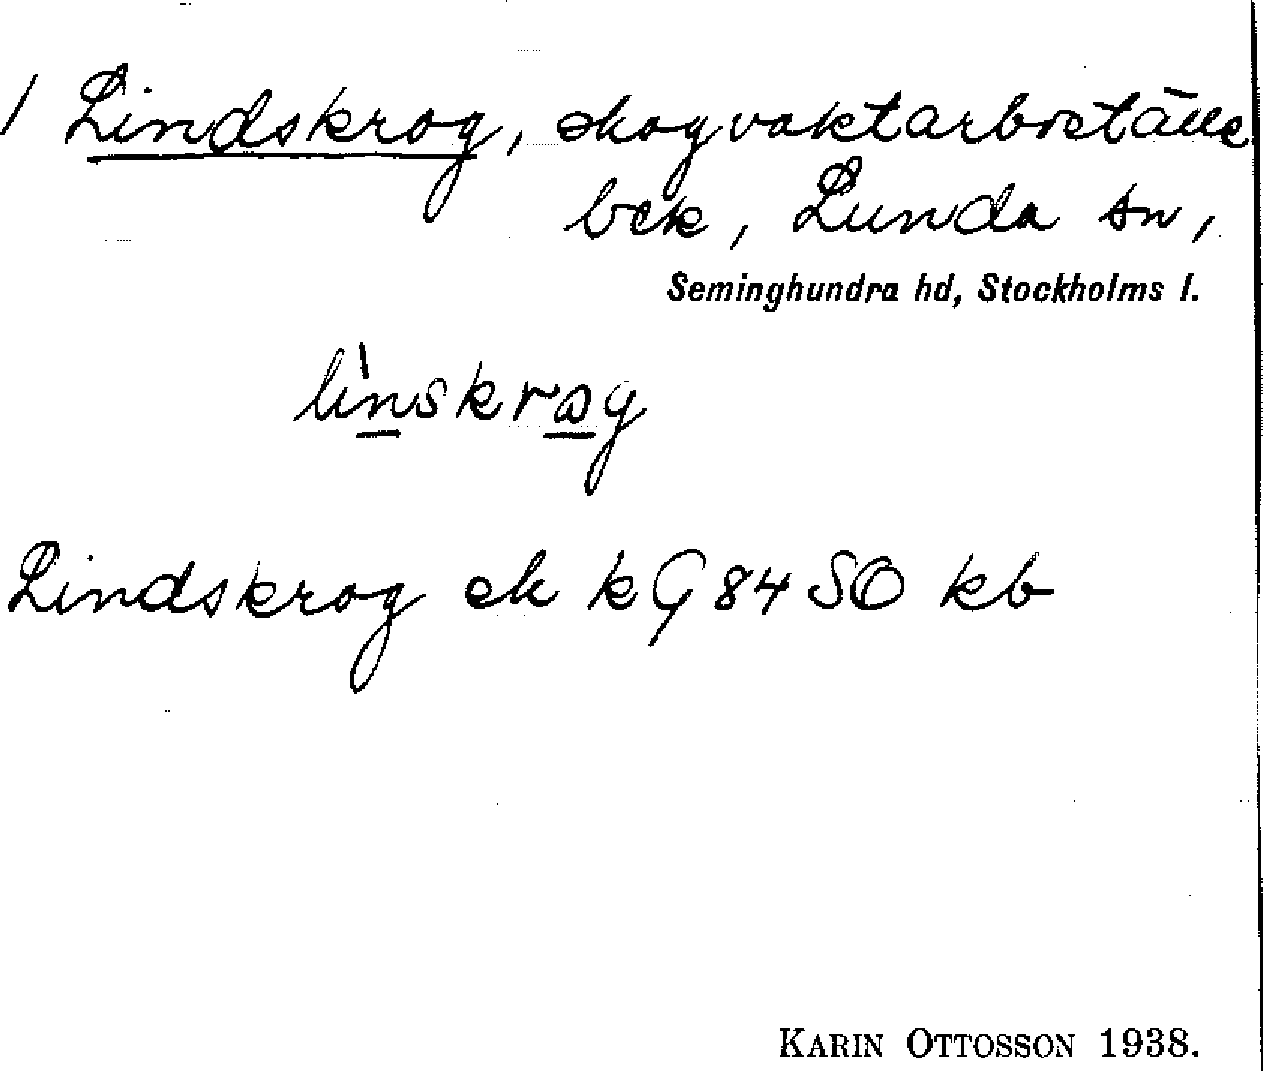 1 Lindskrog, skogvaktarboställe
bek, Lunda sn,
Seminghundra hd, Stockholms l.
lìnskrog
Lindskrog ek k G 84 SO kb
KARIN OTTOSSON 1938.